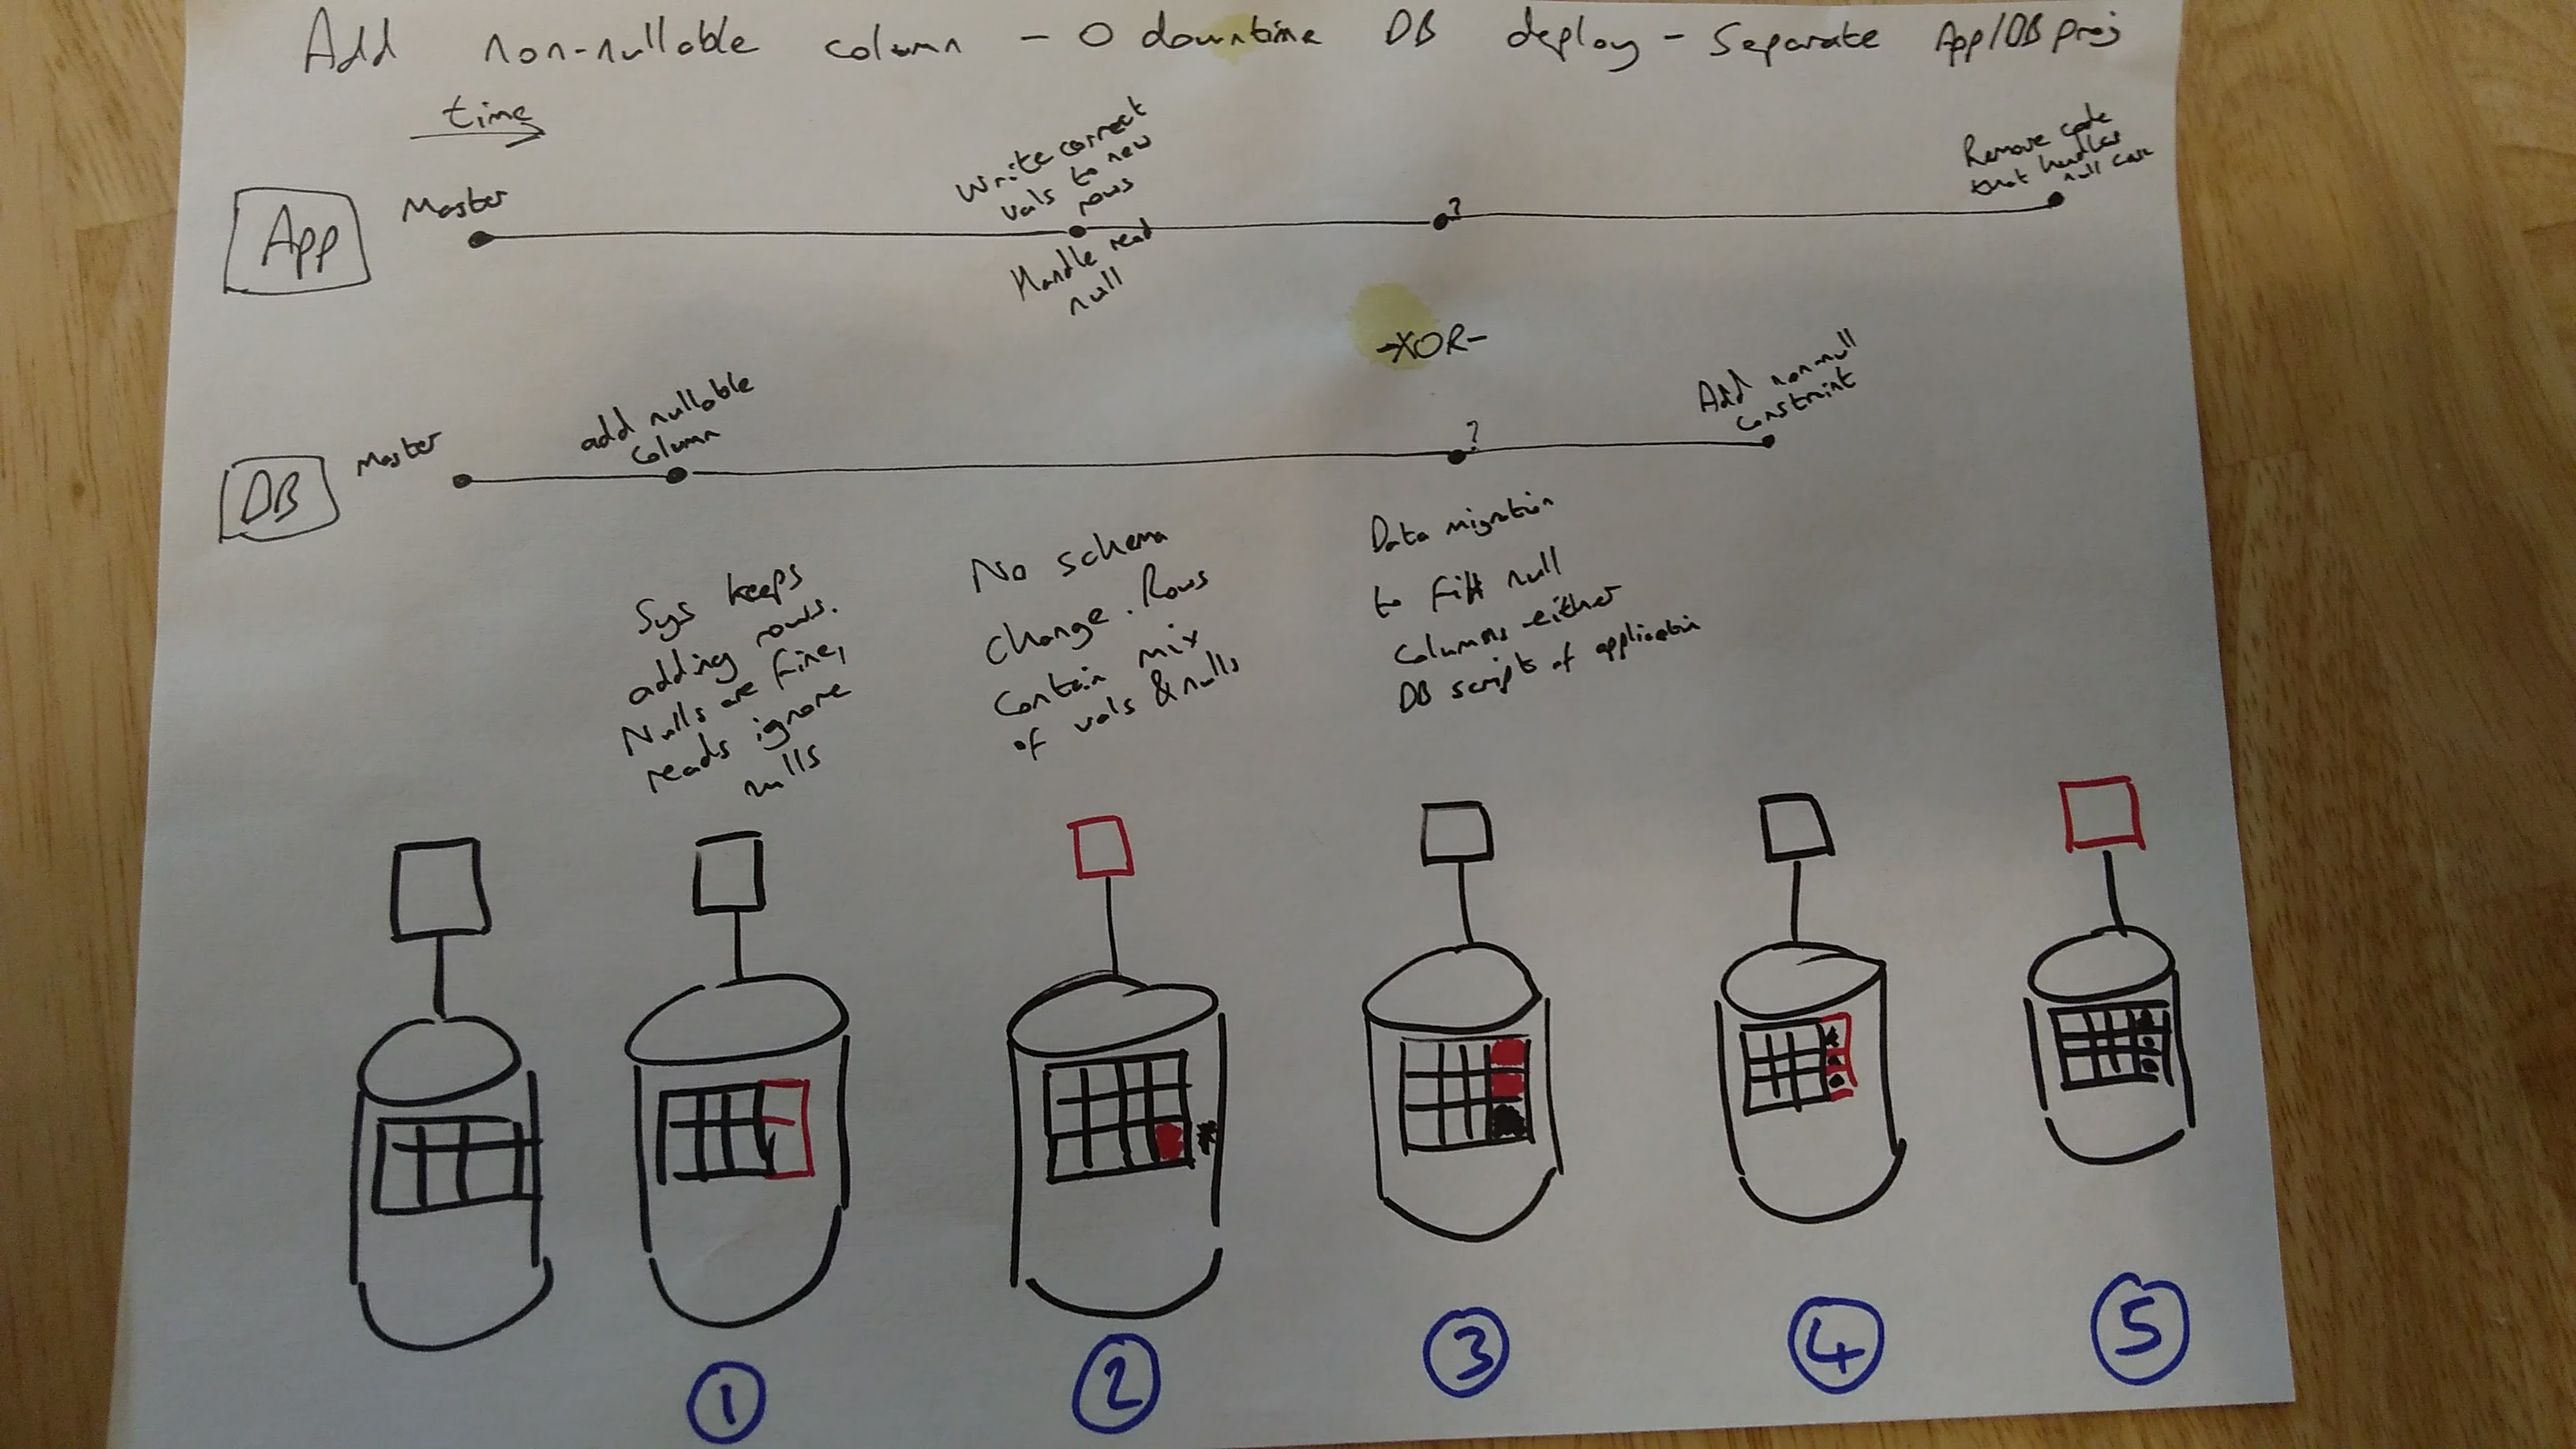 Add non-nullable column - 0 downtime DB deploy - Separate App/DB proj
time
App
Master
Write correct
vals to new
rows
Handle read
null
?
Remove code
that handles
null case
-XOR-
DB
Master
add nullable
column
?
Add non-null
constraint
Sys keeps
adding rows.
Nulls are fine,
reads ignore
nulls
No schema
change. Rows
contain mix
of vals & nulls
Data migration
to fill null
columns either
DB scripts of application
1
2
3
4
5